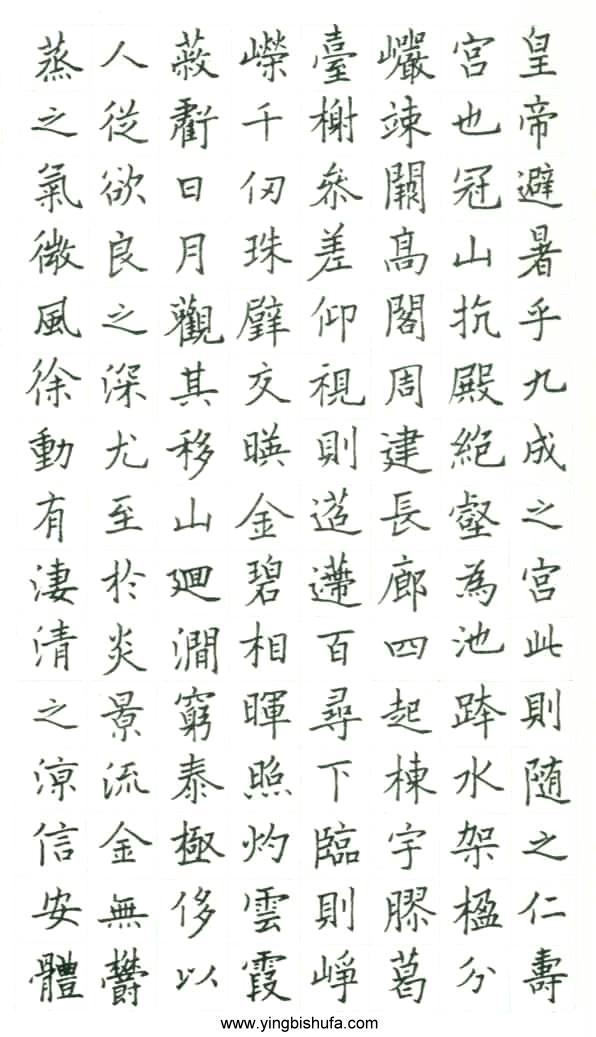 皇帝避暑乎九成之宫此則随之仁壽
宫也冠山抗殿絶壑為池跨水架楹分
巖竦闕髙閣周建長廊四起棟宇膠葛
臺榭叅差仰視則迢遰百尋下臨則崢
嶸千仞珠璧交暎金碧相暉照灼雲霞
蔽虧日月觀其移山廻澗窮泰極侈以
人從欲良之深尤至於炎景流金無欝
蒸之氣微風徐動有淒清之涼信安體
www.yingbishufa.com